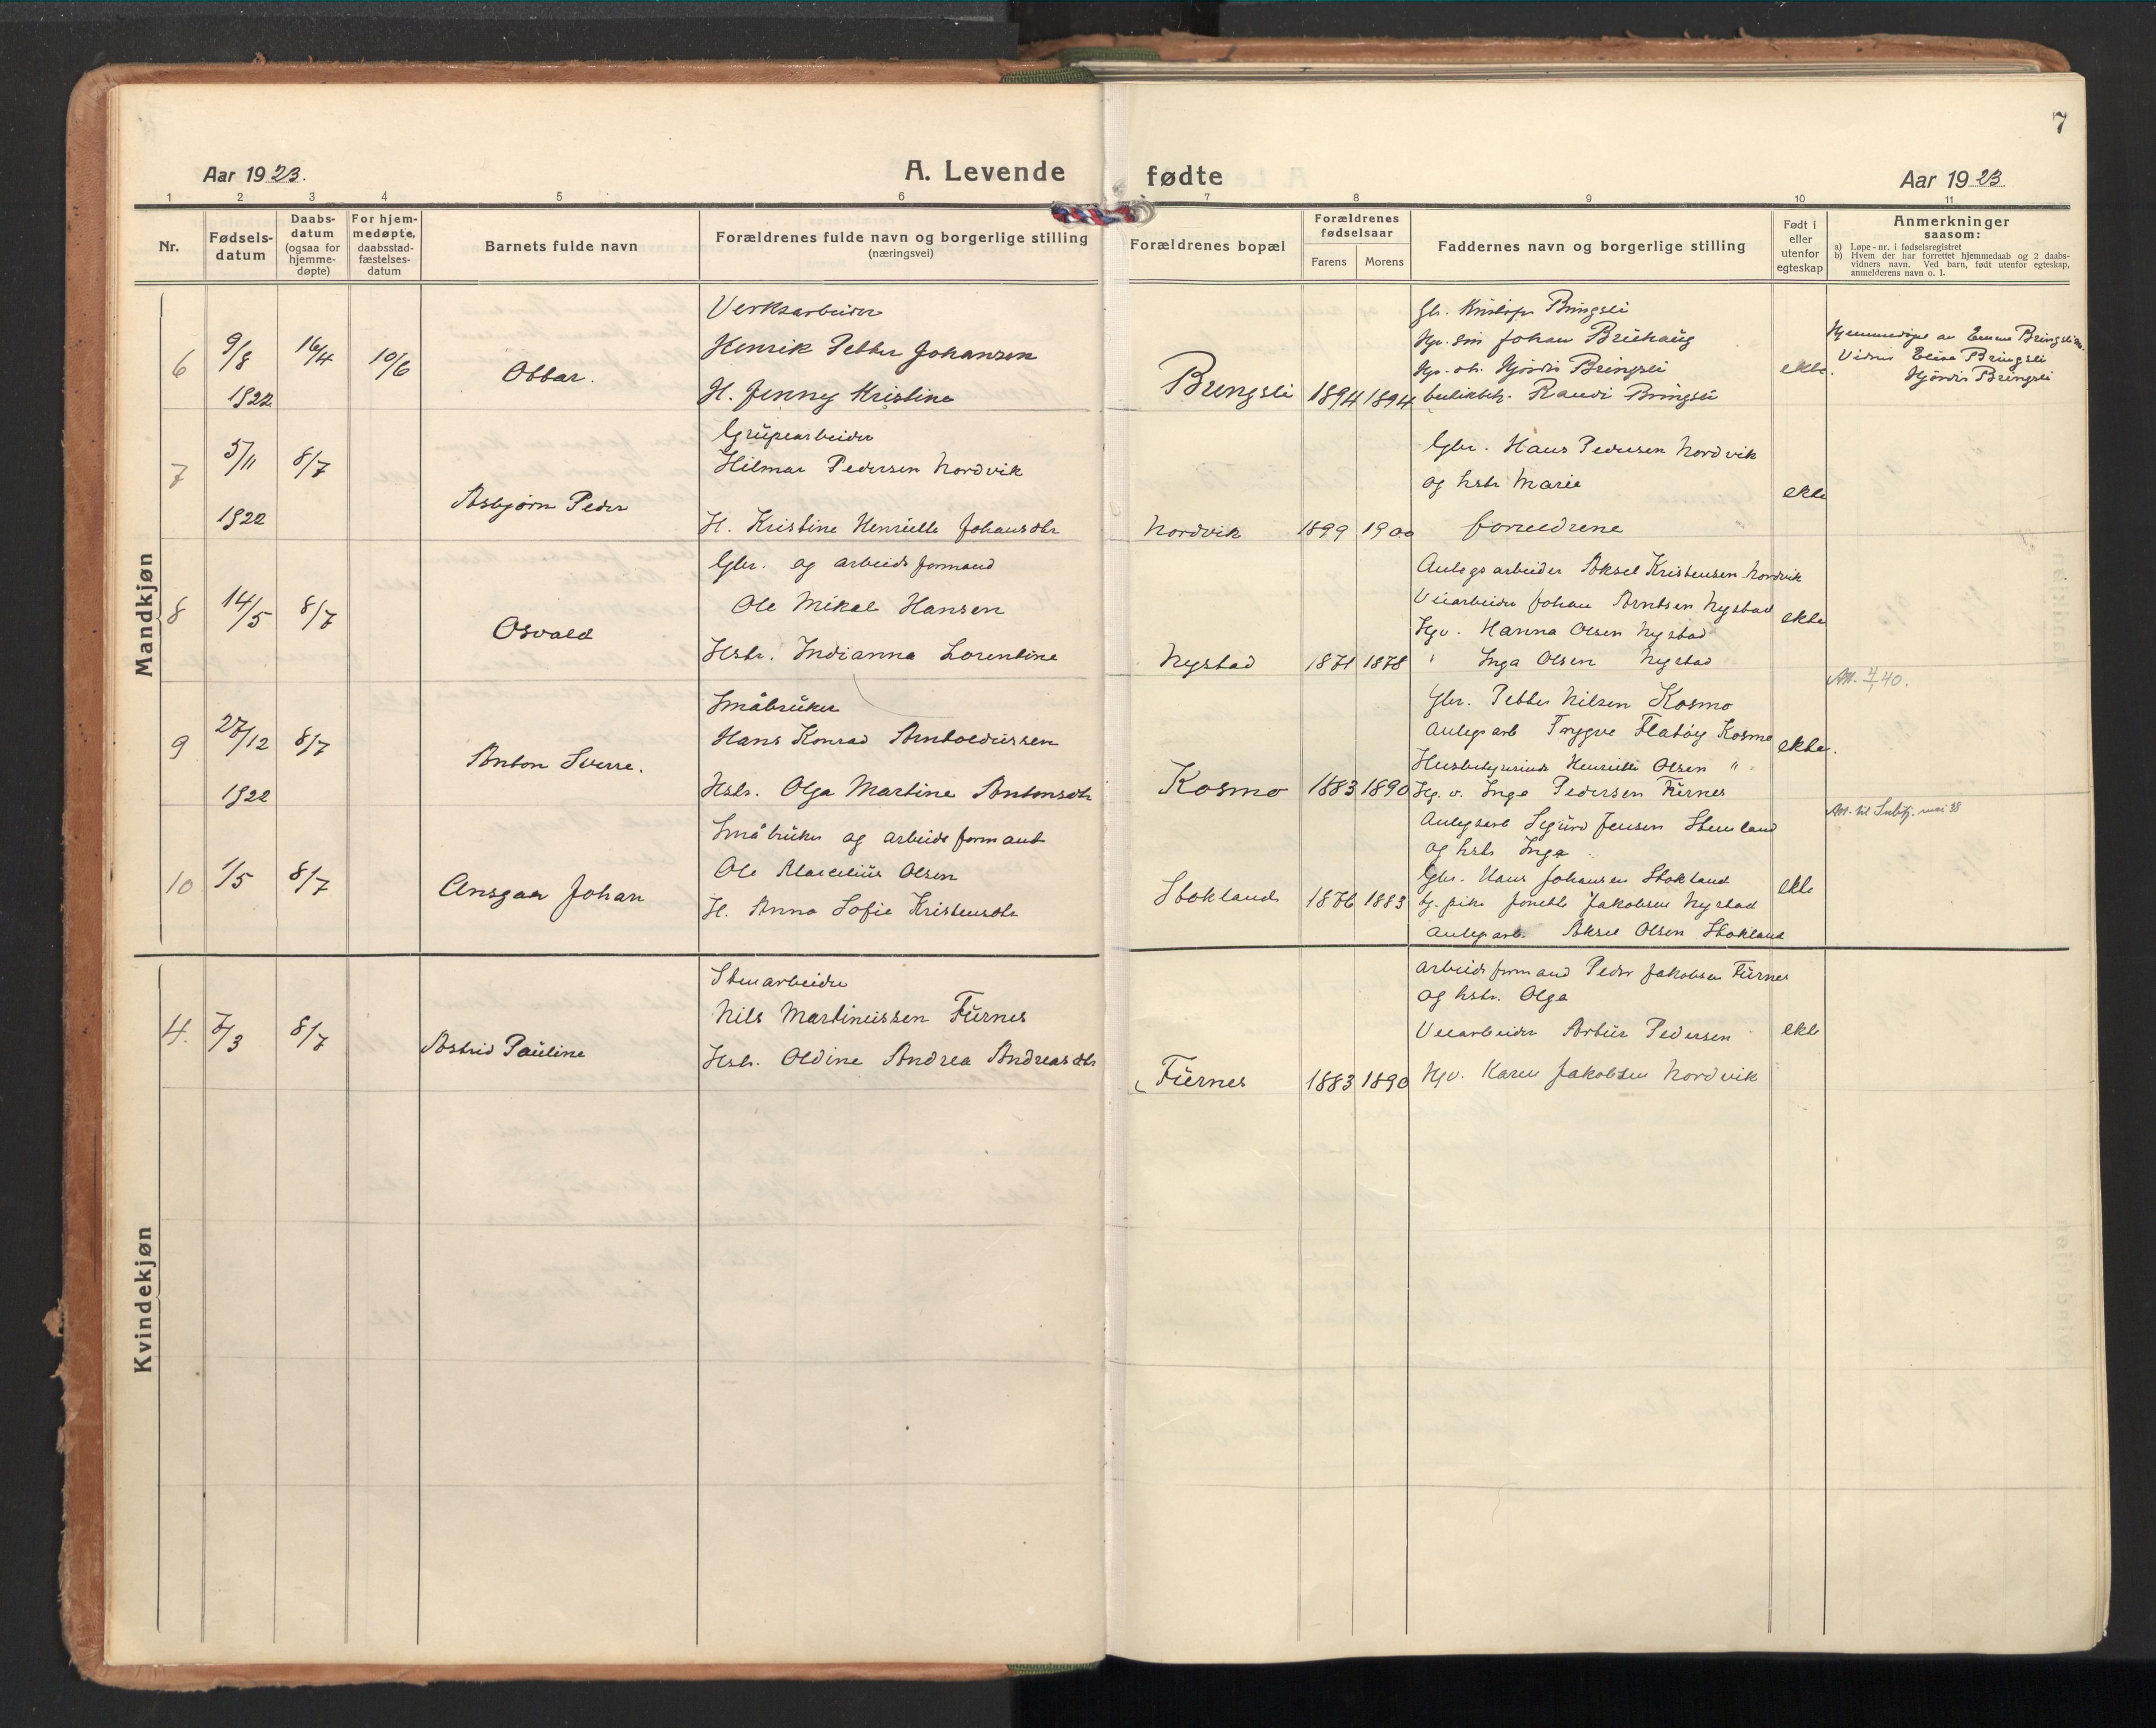 7
Aar 1923.
A. Levende
fødte
Aar 1923
1 2 3 4 5 6 7 8 9 10 11
Nr.
Fødsels-
datum
Daabs-
datum
(ogsaa for
hjemme-
døpte)
For hjem-
medøpte,
daabsstad-
fæstelses-
datum
Barnets fulde navn
Forældrenes fulde navn og borgerlige stilling
(næringsvei)
Forældrenes bopæl
Forældrenes
fødselsaar
Farens
Morens
Faddernes navn og borgerlige stilling
Født i
eller
utenfor
egteskap
Anmerkninger
saasom:
a) Løpe-nr. i fødselsregistret
b) Hvem der har forrettet hjemmedaab og 2 daabs-
vidners navn. Ved barn, født utenfor egteskap,
anmelderens navn o. l.
Mandkjøn
6
9/8
1922
16/4
10/6
Ottar.
Verksarbeider
Henrik Petter Johansen
H. Jenny Kristine
Bringsli
1894 1894
Gb. Kristofer Bringsli
Johan Bringhaug
Hjørdis Bringsli
Randi Bringsli
ekte.
Hjemmedøpt av Emma Bringsli
Vidner Elise Bringsli
Hjørdis Bringsli
7
5/11
1922
8/7
Asbjørn Peder
Grubearbeider
Hilmar Pedersen Nordvik
H. Kristine Henriette Johansdtr
Nordvik
1899 1900
Gbr. Hans Pedersen Nordvik
og hstr Marie
foreldrene
ekte
8
14/5
8/7
Osvald
Gbr. og arbeidsformand
Ole Mikal Hansen
Hstr. Indianna Lorentine
Nystad
1871 1878
Anlegsarbeider Aksel Kristensen Nordvik
Veiarbeider Johan Arntsen Nystad
Hanna Olsen Nystad
" Inga Olsen Nystad
ekte
Att. 4/1 40.
9
27/12
1922
8/7
Anton Sverre.
Småbruker
Hans Konrad Arntoldussen
Hstr. Olga Martine Antonsdtr
Kosmo
1883 1890
Gbr. Petter Nilsen Kosmo
Anlegsarb Trygve Flatøy Kosmo
Husbestyrerinde Henriette Olsen "
Inga Pedersen Furnes
ekte.
Att. til mai 38
10
1/5
8/7
Ansgar Johan
Småbruker og arbeidsformand
Ole Marcelius Olsen
H. Anna Sofie Kristensdtr
Stokland
1876 1883
Anlegsarb Sigurd Jensen Stemland
og hstr Inga
Gbr. Hans Johansen Stokland
tj. pike Jonette Jakobsen Nystad
anlegsarb. Aksel Olsen Stokland
ekte
Kvindekjøn
4.
7/3
8/7
Astrid Pauline
Stenarbeider
Nils Martinussen Furnes
Hstr. Oldine Andrea Andreasdtr
Furnes
1883 1890
arbeidsformand Peder Jakobsen Furnes
og hstr. Olga
Veiarbeider Artur Pedersen
Karen Jakobsen Nordvik
ekte